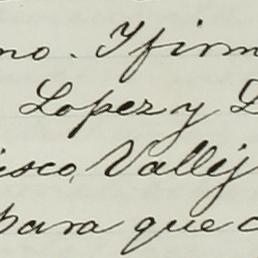 no. I firm
Lopez y D
isco, Vallej
para que c